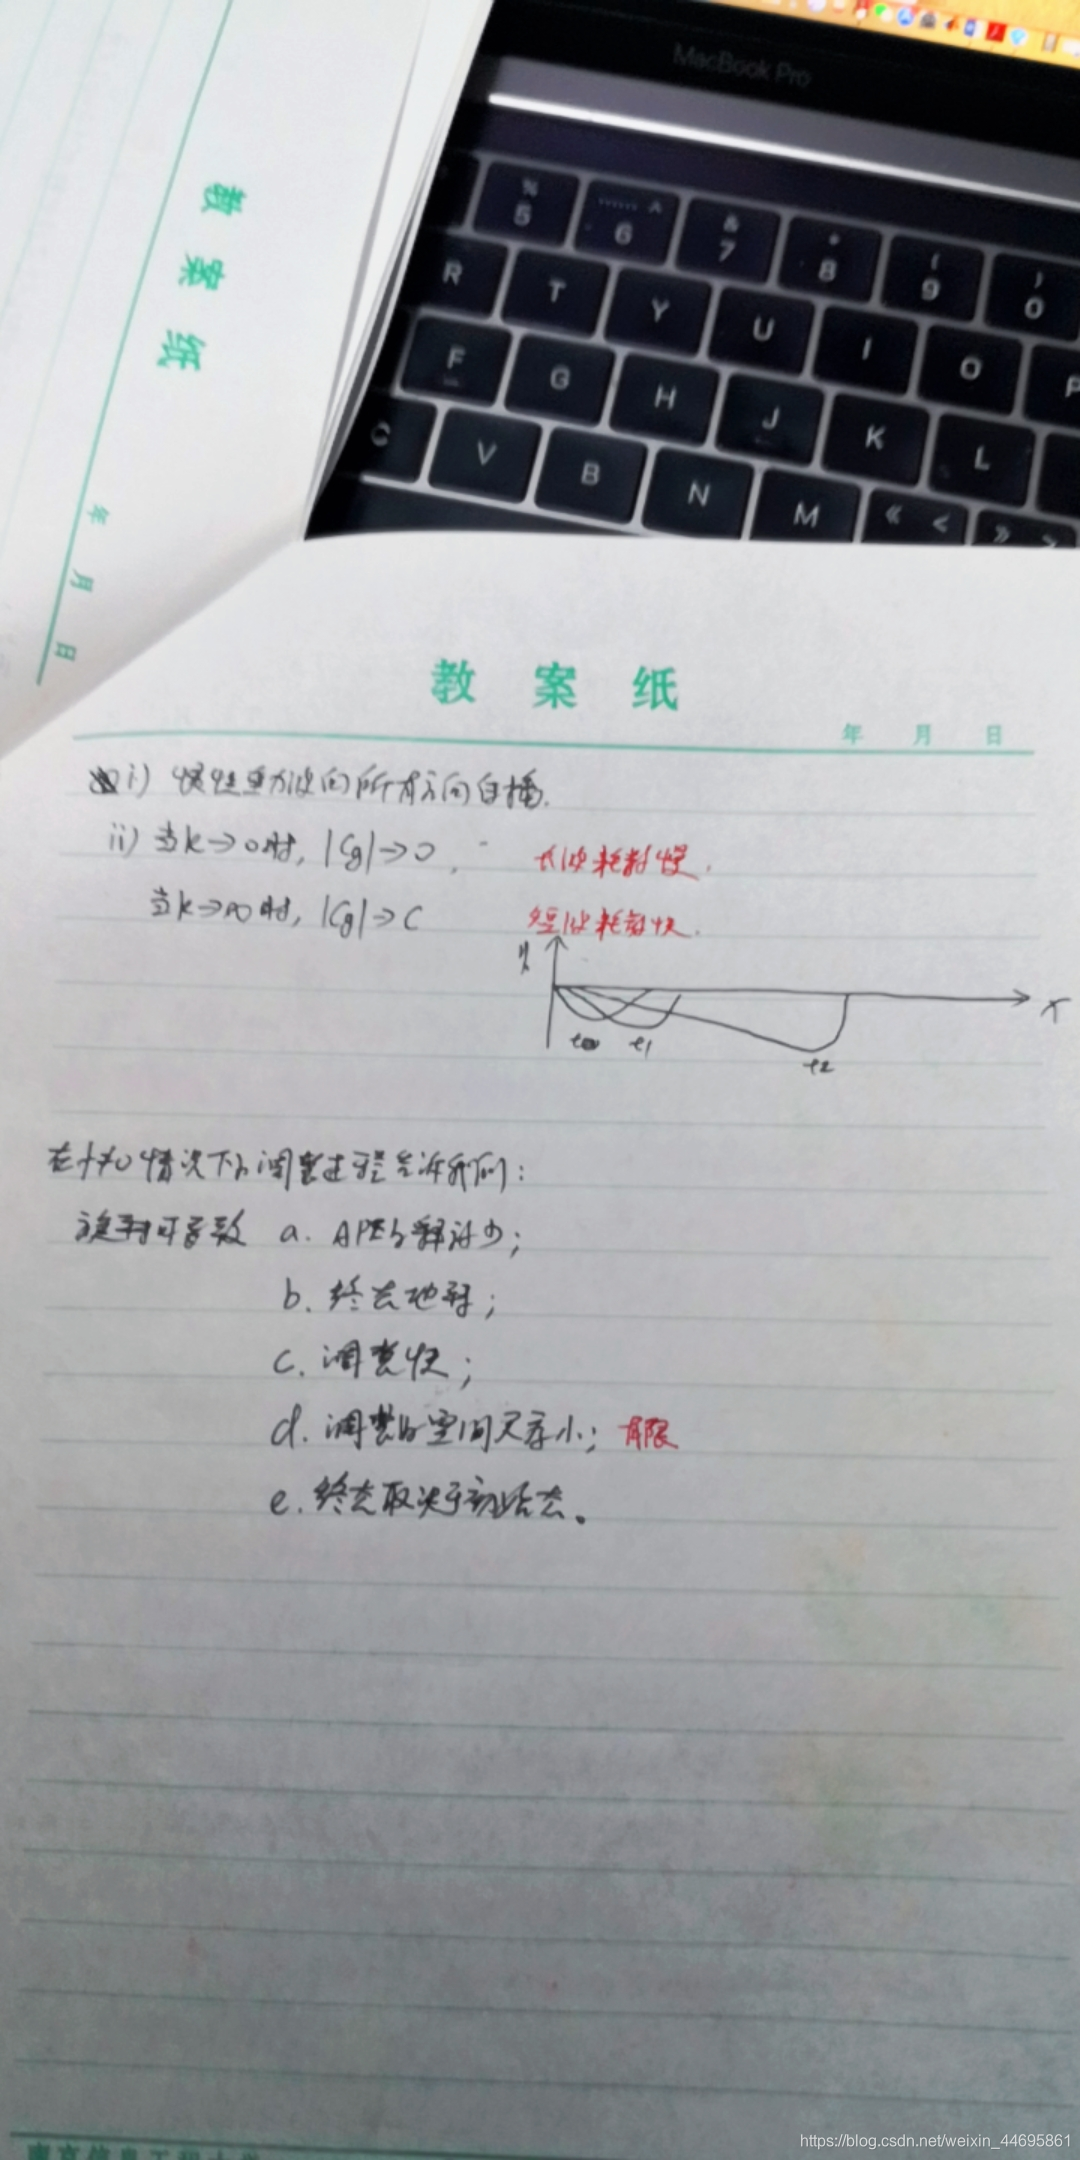 MacBook Pro
% 5 …… ^ 6 & 7 * 8 ( 9 ) 0
R T Y U I O P
F G H J K L
C V B N M 《 < 》 >
教案纸
年 月 日
教案纸
年 月 日
i) 惯性重力波向所有方向传播.
ii) 当k→0时, |Cg|→0, 长波耗散慢.
当k→∞时, |Cg|→C 短波耗散快.
x
t1
t2
在f≠0情况下的调整过程告诉我们:
旋转可导致 a. APE的释放少;
b. 终态地转;
c. 调整快;
d. 调整的空间尺度小; 有限
e. 终态取决于初始态。
南京信息工程大学
https://blog.csdn.net/weixin_44695861